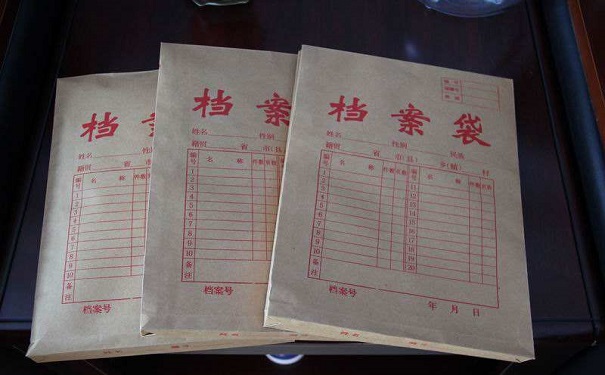 档案
档案
档案袋
姓名 性别
姓名 性别
姓名 性别 民族
籍贯 省 市
籍贯 省 市(县)
籍贯 省 市(县) 乡(镇) 村
编号 名称 件数 页数
编号 名称 件数 页数
编号 名称 件数 页数 编号 名称 件数 页数
1
2
3
4
5
6
7
8
9
10
备注
1
2
3
4
5
6
7
8
9
10
备注
1 11
2 12
3 13
4 14
5 15
6 16
7 17
8 18
9 19
10 20
备注
档案号
档案号
档案号 年 月 日